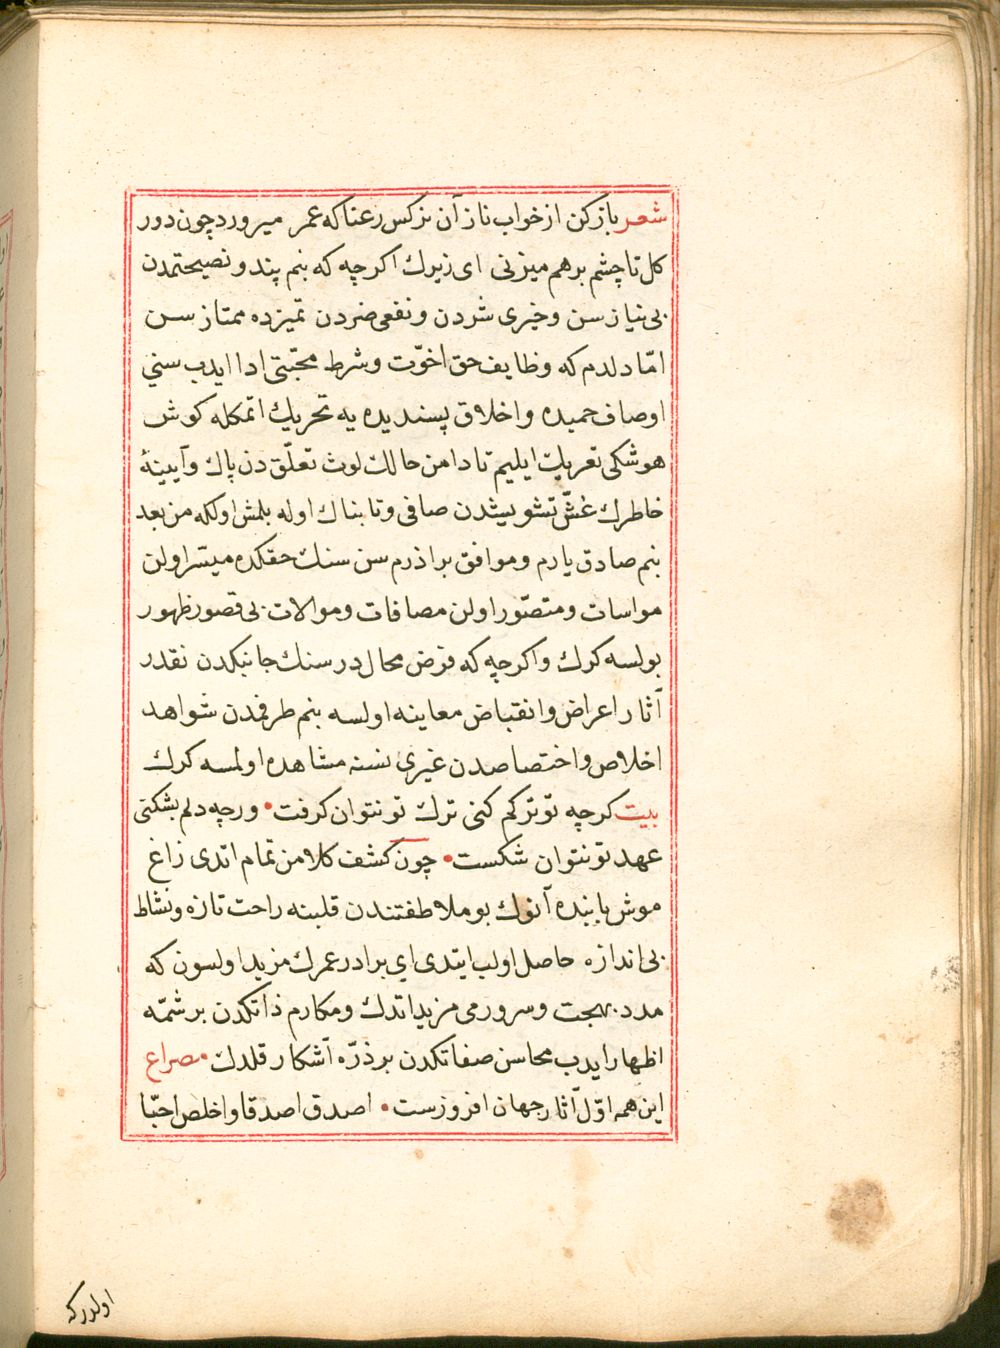 شعر باز کن از خواب ناز آن نرکس رعنا که عمر میرود چون دور
کل تا چشم برهم میزنی ای زیرك اکرچه که بنم پند و نصیحتمدن
بی نیاز سن و خیری شردن و نفعی ضردن تمیزده ممتاز سن
امّا دلدم که وظایف حق اخوّت و شرط محبّتی ادا ایدب سني
اوصاف حمیده و اخلاق پسندیده یه تحریك اتمکله کوش
هوشکی تعریك ایلیم تا دامن حالك لوث تعلّق دن پاك و آیینهٔ
خاطرك غشّ تشویشدن صافی و تابناك اوله بلمش اولکله من بعد
بنم صادق یارم و موافق براذرم سن سنك حقکده میسّر اولن
مواسات و متصّور اولن مصافات و موالات بی قصور ظهور
بولسه کرك و اکرچه که فرض محال در سنك جانبکدن نقدر
آثار اعراض و انقباض معاینه اولسه بنم طرفمدن شواهد
اخلاص و اختصاصدن غیری نسنه مشاهده اولمسه کرك
بیت کرچه تو ترکم کنی ترك تو نتوان کرفت • ورچه دلم بشکنی
عهد تو نتوان شکست • چون کشف کلامن تمام اتدی زاغ
موش بابنده آنوك بو ملاطفتندن قلبنه راحت تازه و نشاط
بی اندازه حاصل اولب ایتدی اي برادر عمرك مزید اولسون که
مدد بهجت و سرورمی مزید اتدك و مکارم ذاتکدن بر شمّه
اظهار ایدب محاسن صفاتکدن بر ذرّه آشکار قلدك مصراع
این همه اوّل آثار جهان افروزست • اصدق اصدقا و اخلص احبّا
اولدرکه